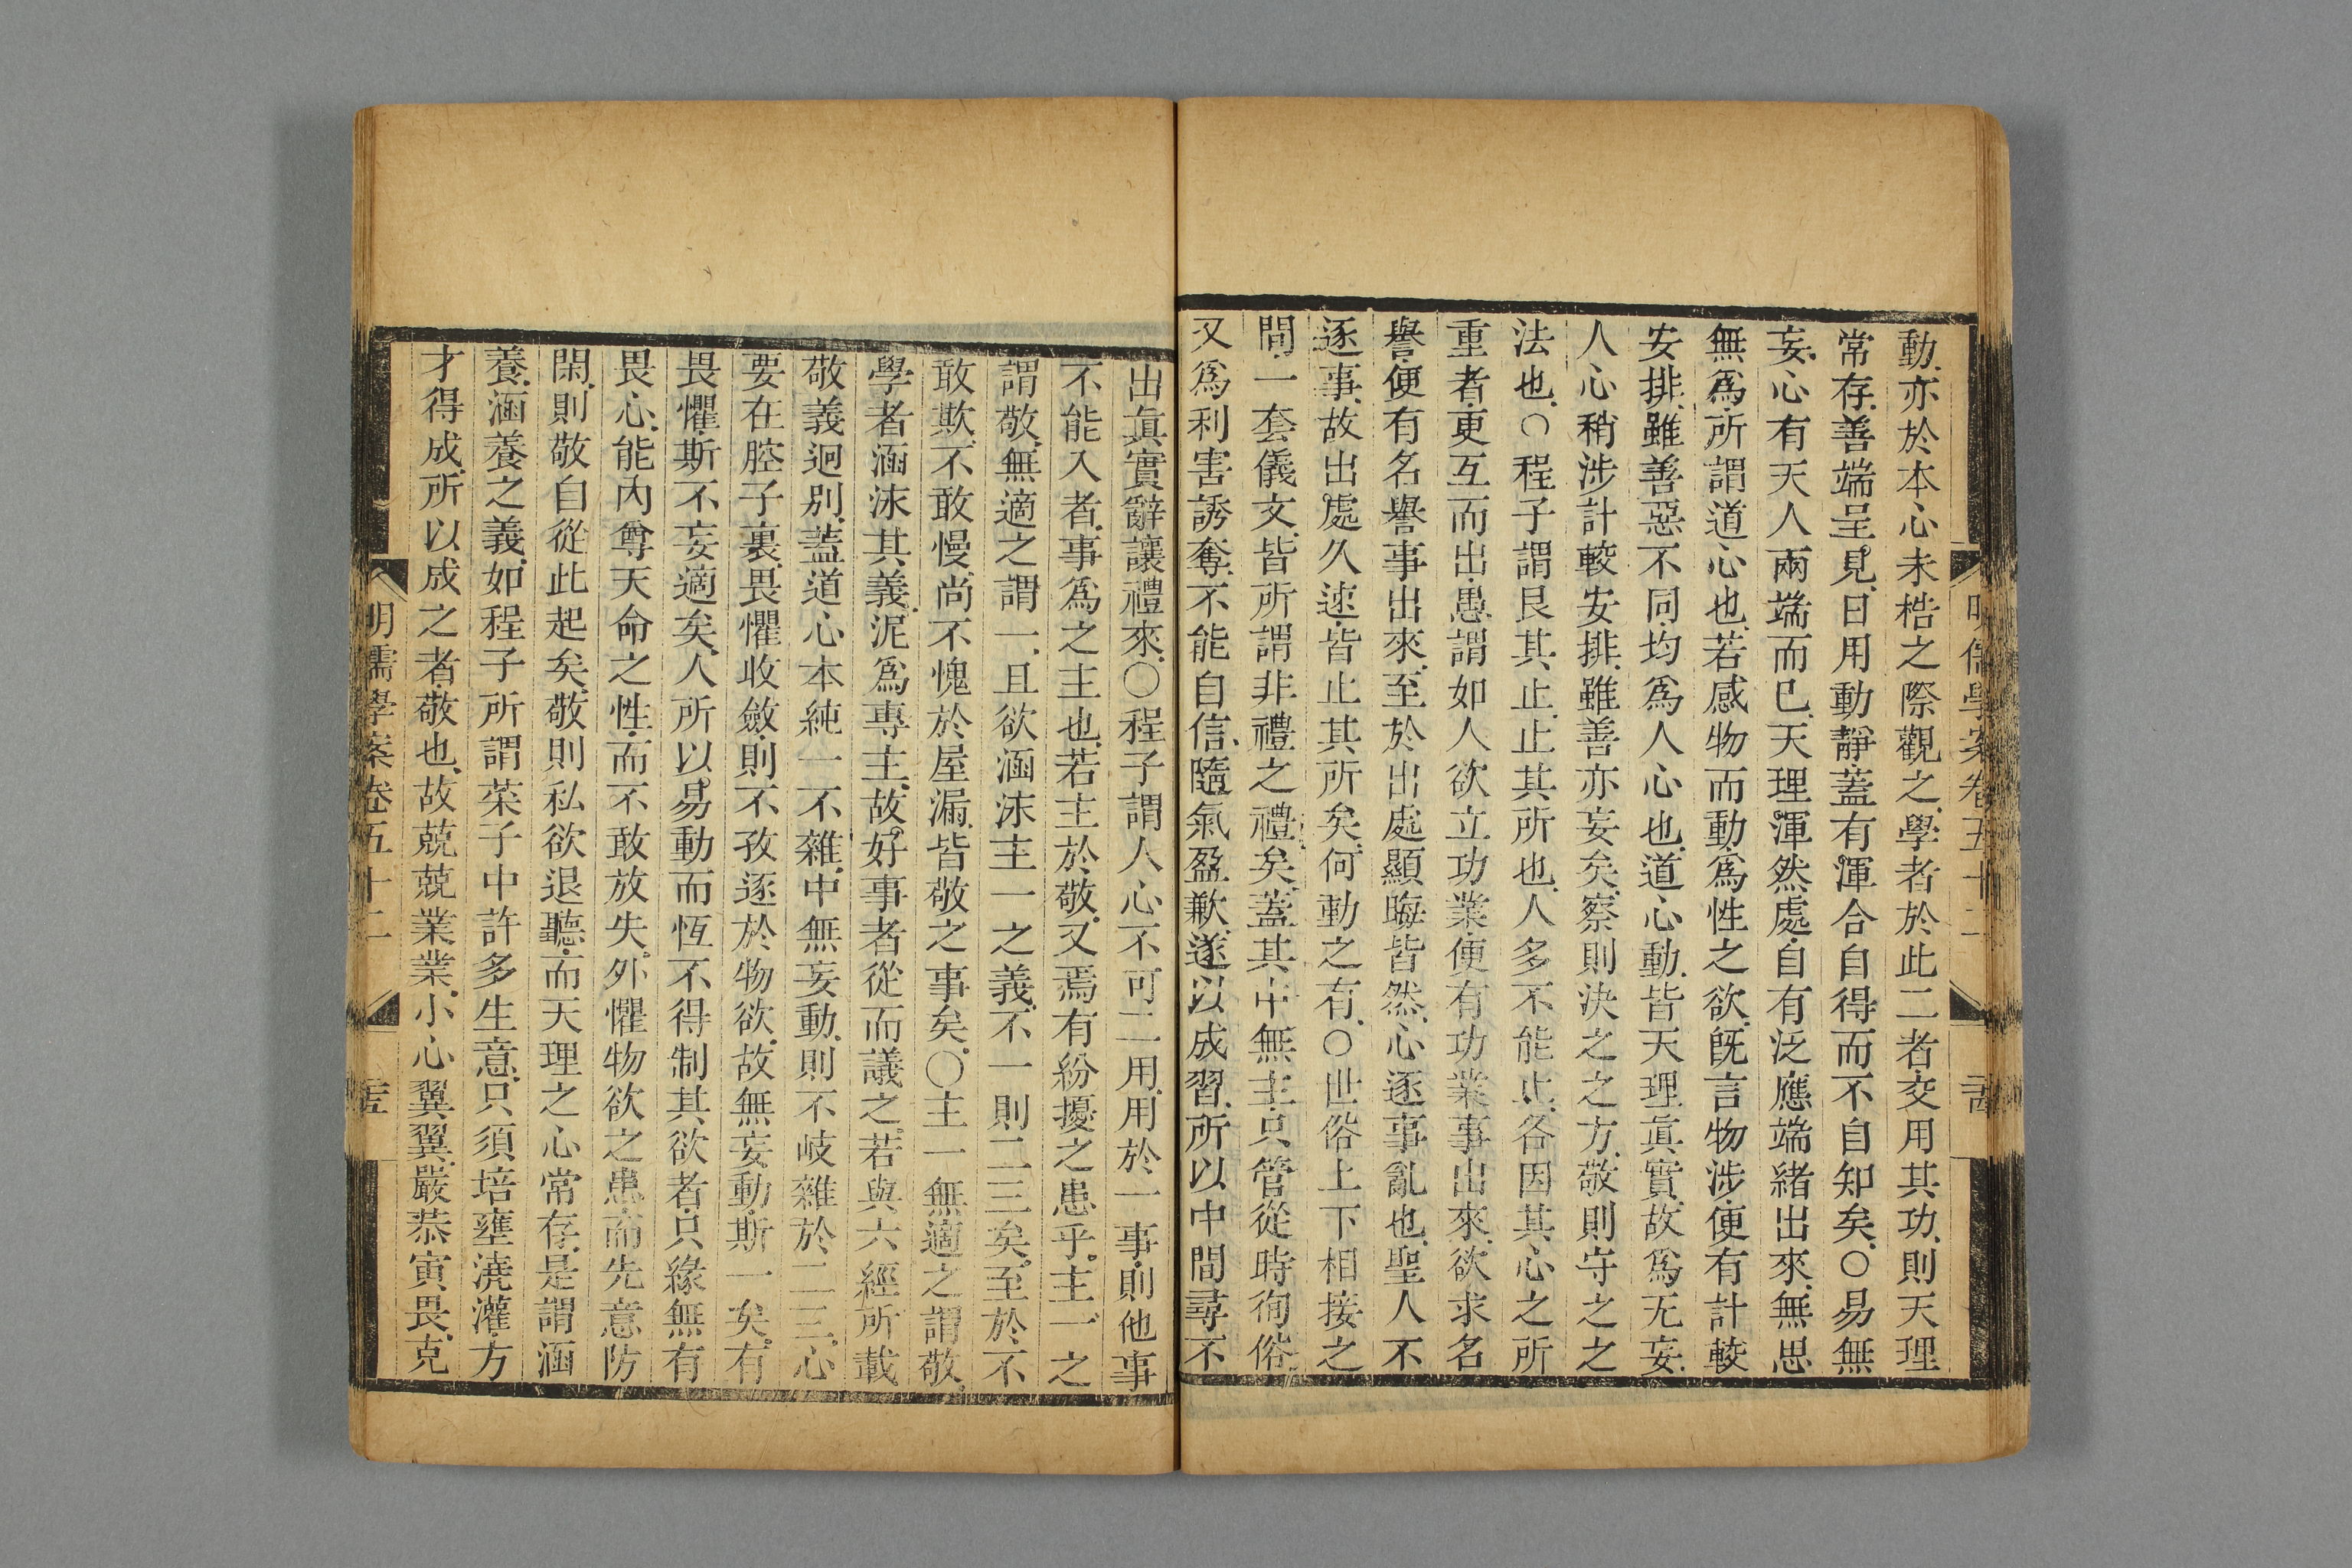 動亦於本心未梏之際觀之學者於此二者交用其功則天理
常存善端呈見日用動靜蓋有渾合自得而不自知矣○易無
妄心有天人兩端而已天理渾然處自有泛應端緒出來無思
無爲所謂道心也若感物而動爲性之欲旣言物涉便有計較
安排雖善惡不同均爲人心也道心動皆天理眞實故爲无妄
人心稍涉計較安排雖善亦妄矣察則決之之方敬則守之之
法也○程子謂艮其止止其所也人多不能止各因其心之所
重者更互而出愚謂如人欲立功業便有功業事出來欲求名
譽便有名譽事出來至於出處顯晦皆然心逐事亂也聖人不
逐事故出處久速皆止其所矣何動之有○世俗上下相接之
間一套儀文皆所謂非禮之禮矣蓋其中無主只管從時徇俗
又爲利害誘奪不能自信隨氣盈歉遂以成習所以中間尋不
出眞實辭讓禮來○程子謂人心不可二用用於一事則他事
不能入者事爲之主也若主於敬又焉有紛擾之患乎主一之
謂敬無適之謂一且欲涵沫主一之義不一則二三矣至於不
敢欺不敢慢尚不愧於屋漏皆敬之事矣○主一無適之謂敬
學者涵沫其義泥爲專主故好事者從而議之若與六經所載
敬義迥別蓋道心本純一不雜中無妄動則不岐雜於二三心
要在腔子裏畏懼收斂則不孜逐於物欲故無妄動斯一矣有
畏懼斯不妄適矣人所以易動而恆不得制其欲者只緣無有
畏心能內尊天命之性而不敢放失外懼物欲之患而先意防
閑則敬自從此起矣敬則私欲退聽而天理之心常存是謂涵
養涵養之義如程子所謂菜子中許多生意只須培壅澆灌方
才得成所以成之者敬也故兢兢業業小心翼翼嚴恭寅畏克
明儒學案卷五十二